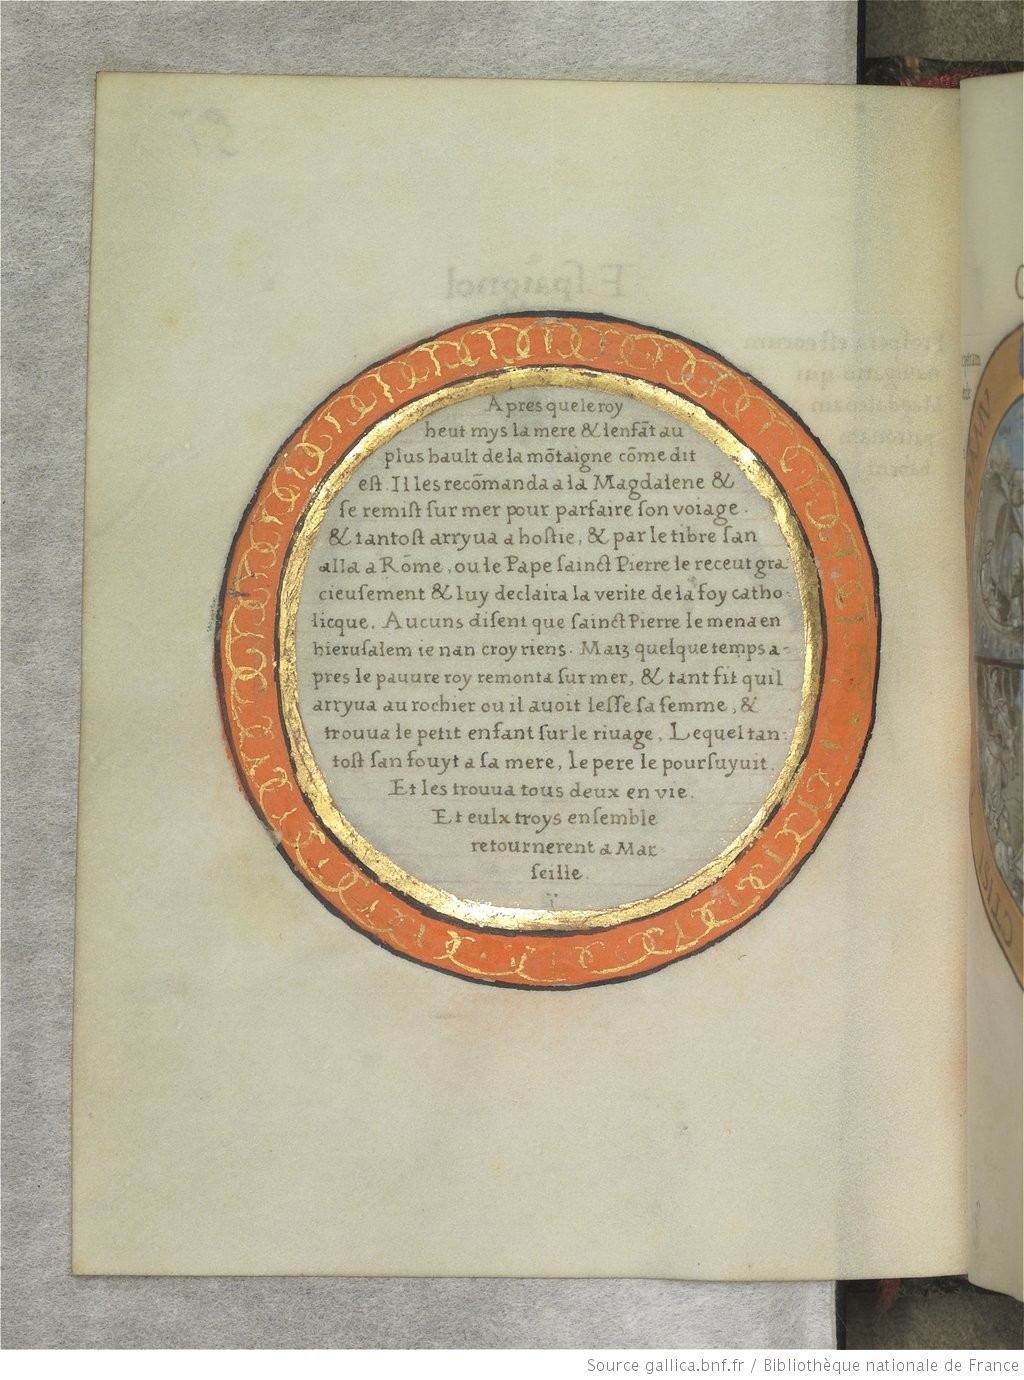 Apres que le roy
heut mys la mere & lenfãt au
plus hault de la mõtaigne cõme dit
est. Il les recõmanda a la Magdalene &
se remist sur mer pour parfaire son voiage.
& tantost arryua a hostie, & par le tibre san
alla a Rõme, ou le Pape sainct Pierre le receut gra
cieusement & luy declaira la verite de la foy catho-
licque. Aucuns disent que sainct Pierre le mena en
hierusalem ie nan croy riens. Maiz quelque temps a-
pres le pauure roy remonta sur mer, & tant fit quil
arryua au rochier ou il auoit lesse sa femme, &
trouua le petit enfant sur le riuage, Lequel tan-
tost san fouyt a sa mere, le pere le poursuyuit.
Et les trouua tous deux en vie.
Et eulx troys ensemble
retournerent a Mar-
seille.
Source gallica.bnf.fr / Bibliothèque nationale de France